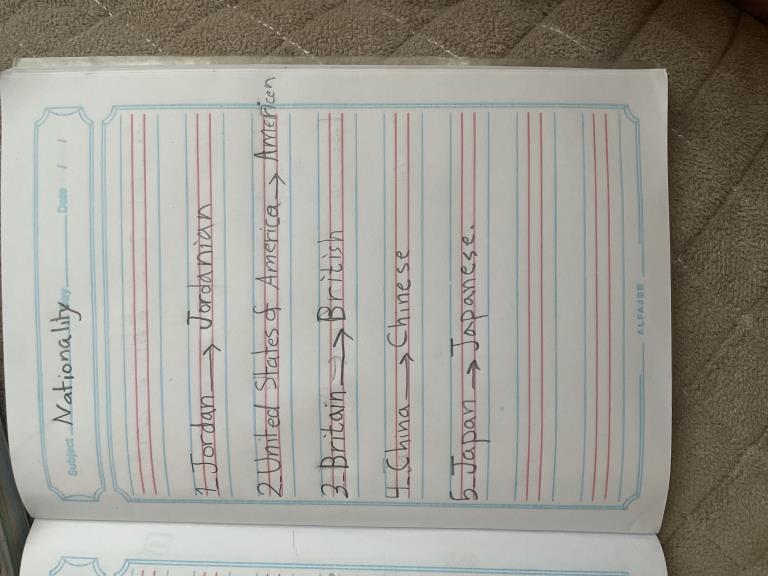 Subject Nationality Day Date / /
1_Jordan → Jordanian
2_United States of America → American
3_Britain → British
4_China → Chinese
5_Japan → Japanese.
ALFAJER